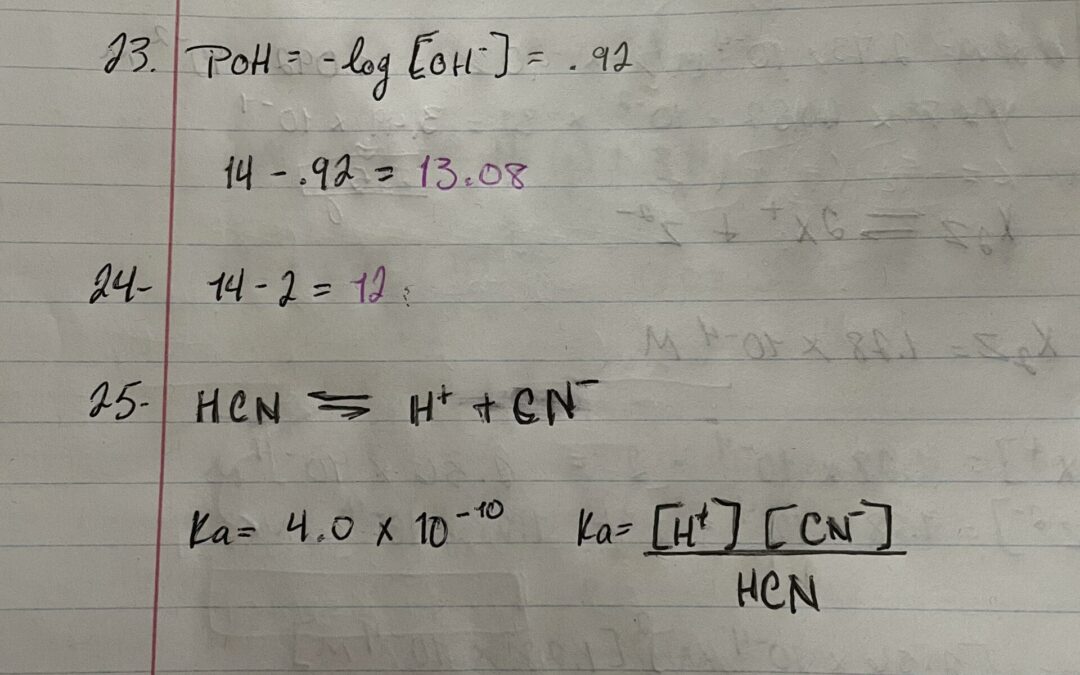 23. POH = -log [OH⁻] = .92
14 - .92 = 13.08
24- 14 - 2 = 12
25- HCN ⇌ H⁺ + CN⁻
Ka= 4.0 x 10⁻¹⁰ Ka= [H⁺] [CN⁻]
HCN